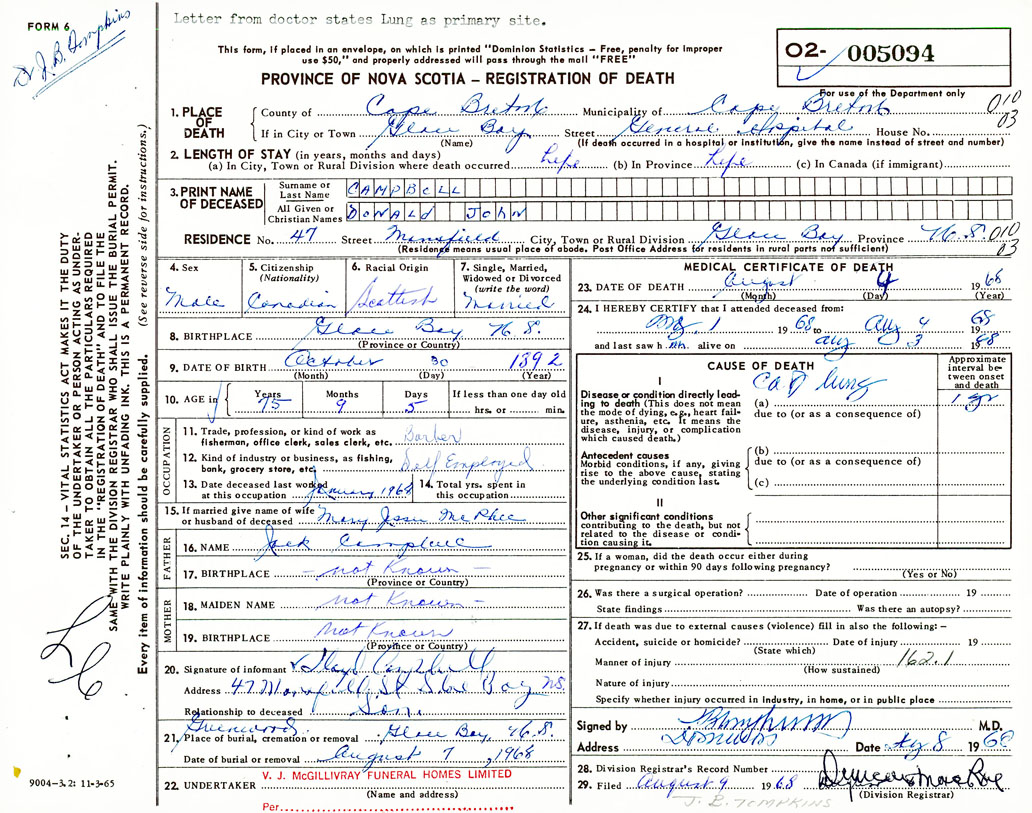 Letter from doctor states Lung as primary site.
FORM 6
Dr J. B. Tompkins
This form, if placed in an envelope, on which is printed "Dominion Statistics – Free, penalty for improper
use $50," and properly addressed will pass through the mail "FREE"
PROVINCE OF NOVA SCOTIA – REGISTRATION OF DEATH
02- 005094
For use of the Department only
010
03
1. PLACE OF DEATH
County of Cape Breton Municipality of Cape Breton
If in City or Town Glace Bay Street General Hospital House No.
(Name) (If death occurred in a hospital or institution, give the name instead of street and number)
2. LENGTH OF STAY (in years, months and days)
(a) In City, Town or Rural Division where death occurred life (b) In Province life (c) In Canada (if immigrant)
3. PRINT NAME OF DECEASED
Surname or Last Name CAMPBELL
All Given or Christian Names DONALD JOHN
RESIDENCE No. 47 Street Mansfield City, Town or Rural Division Glace Bay Province N.S. 010
03
(Residence means usual place of abode. Post Office Address for residents in rural parts not sufficient)
4. Sex
Male
5. Citizenship
(Nationality)
Canadian
6. Racial Origin
Scottish
7. Single, Married,
Widowed or Divorced
(write the word)
Married
8. BIRTHPLACE Glace Bay N.S.
(Province or Country)
9. DATE OF BIRTH October 30 1892
(Month) (Day) (Year)
10. AGE in Years 75 Months 9 Days 5 If less than one day old
hrs. or min.
OCCUPATION
11. Trade, profession, or kind of work as
fisherman, office clerk, sales clerk, etc. Barber
12. Kind of industry or business, as fishing,
bank, grocery store, etc. Self Employed
13. Date deceased last worked
at this occupation January 1968
14. Total yrs. spent in
this occupation
15. If married give name of wife
or husband of deceased Mary Jessie McPhee
FATHER
16. NAME Jack Campbell
17. BIRTHPLACE – not Known –
(Province or Country)
MOTHER
18. MAIDEN NAME not Known –
19. BIRTHPLACE not Known
(Province or Country)
20. Signature of informant Lloyd Campbell
Address 47 Mansfield St Glace Bay N.S.
Relationship to deceased Son
21. Place of burial, cremation or removal Greenwood Glace Bay, N.S.
Date of burial or removal August 7, 1968
22. UNDERTAKER V. J. McGILLIVRAY FUNERAL HOMES LIMITED
(Name and address)
Per
MEDICAL CERTIFICATE OF DEATH
23. DATE OF DEATH August 4 1968
(Month) (Day) (Year)
24. I HEREBY CERTIFY that I attended deceased from:
Aug 1 1968 to Aug 4 1968
and last saw h im alive on Aug 3 1968
CAUSE OF DEATH
Approximate interval between onset and death
I
Disease or condition directly leading to death (This does not mean the mode of dying, e.g., heart failure, asthenia, etc. It means the disease, injury, or complication which caused death.)
(a) Ca of lung 1 yr
due to (or as a consequence of)
Antecedent causes
Morbid conditions, if any, giving rise to the above cause, stating the underlying condition last.
(b)
due to (or as a consequence of)
(c)
II
Other significant conditions
contributing to the death, but not related to the disease or condition causing it.
25. If a woman, did the death occur either during
pregnancy or within 90 days following pregnancy?
(Yes or No)
26. Was there a surgical operation? Date of operation 19
State findings Was there an autopsy?
27. If death was due to external causes (violence) fill in also the following: –
Accident, suicide or homicide? Date of injury 19
(State which)
Manner of injury 162.1
(How sustained)
Nature of injury
Specify whether injury occurred in industry, in home, or in public place
Signed by M.D.
Address Dominion Date Aug 8 1968
28. Division Registrar's Record Number
29. Filed August 9 1968 Duncan MacRae
(Division Registrar)
J. B. TOMPKINS
SEC. 14 – VITAL STATISTICS ACT MAKES IT THE DUTY
OF THE UNDERTAKER OR PERSON ACTING AS UNDER-
TAKER TO OBTAIN ALL THE PARTICULARS REQUIRED
IN THE "REGISTRATION OF DEATH" AND TO FILE THE
SAME WITH THE DIVISION REGISTRAR WHO SHALL ISSUE THE BURIAL PERMIT.
WRITE PLAINLY WITH UNFADING INK. THIS IS A PERMANENT RECORD.
Every item of information should be carefully supplied. (See reverse side for instructions.)
LC
9004–3.2: 11-3-65